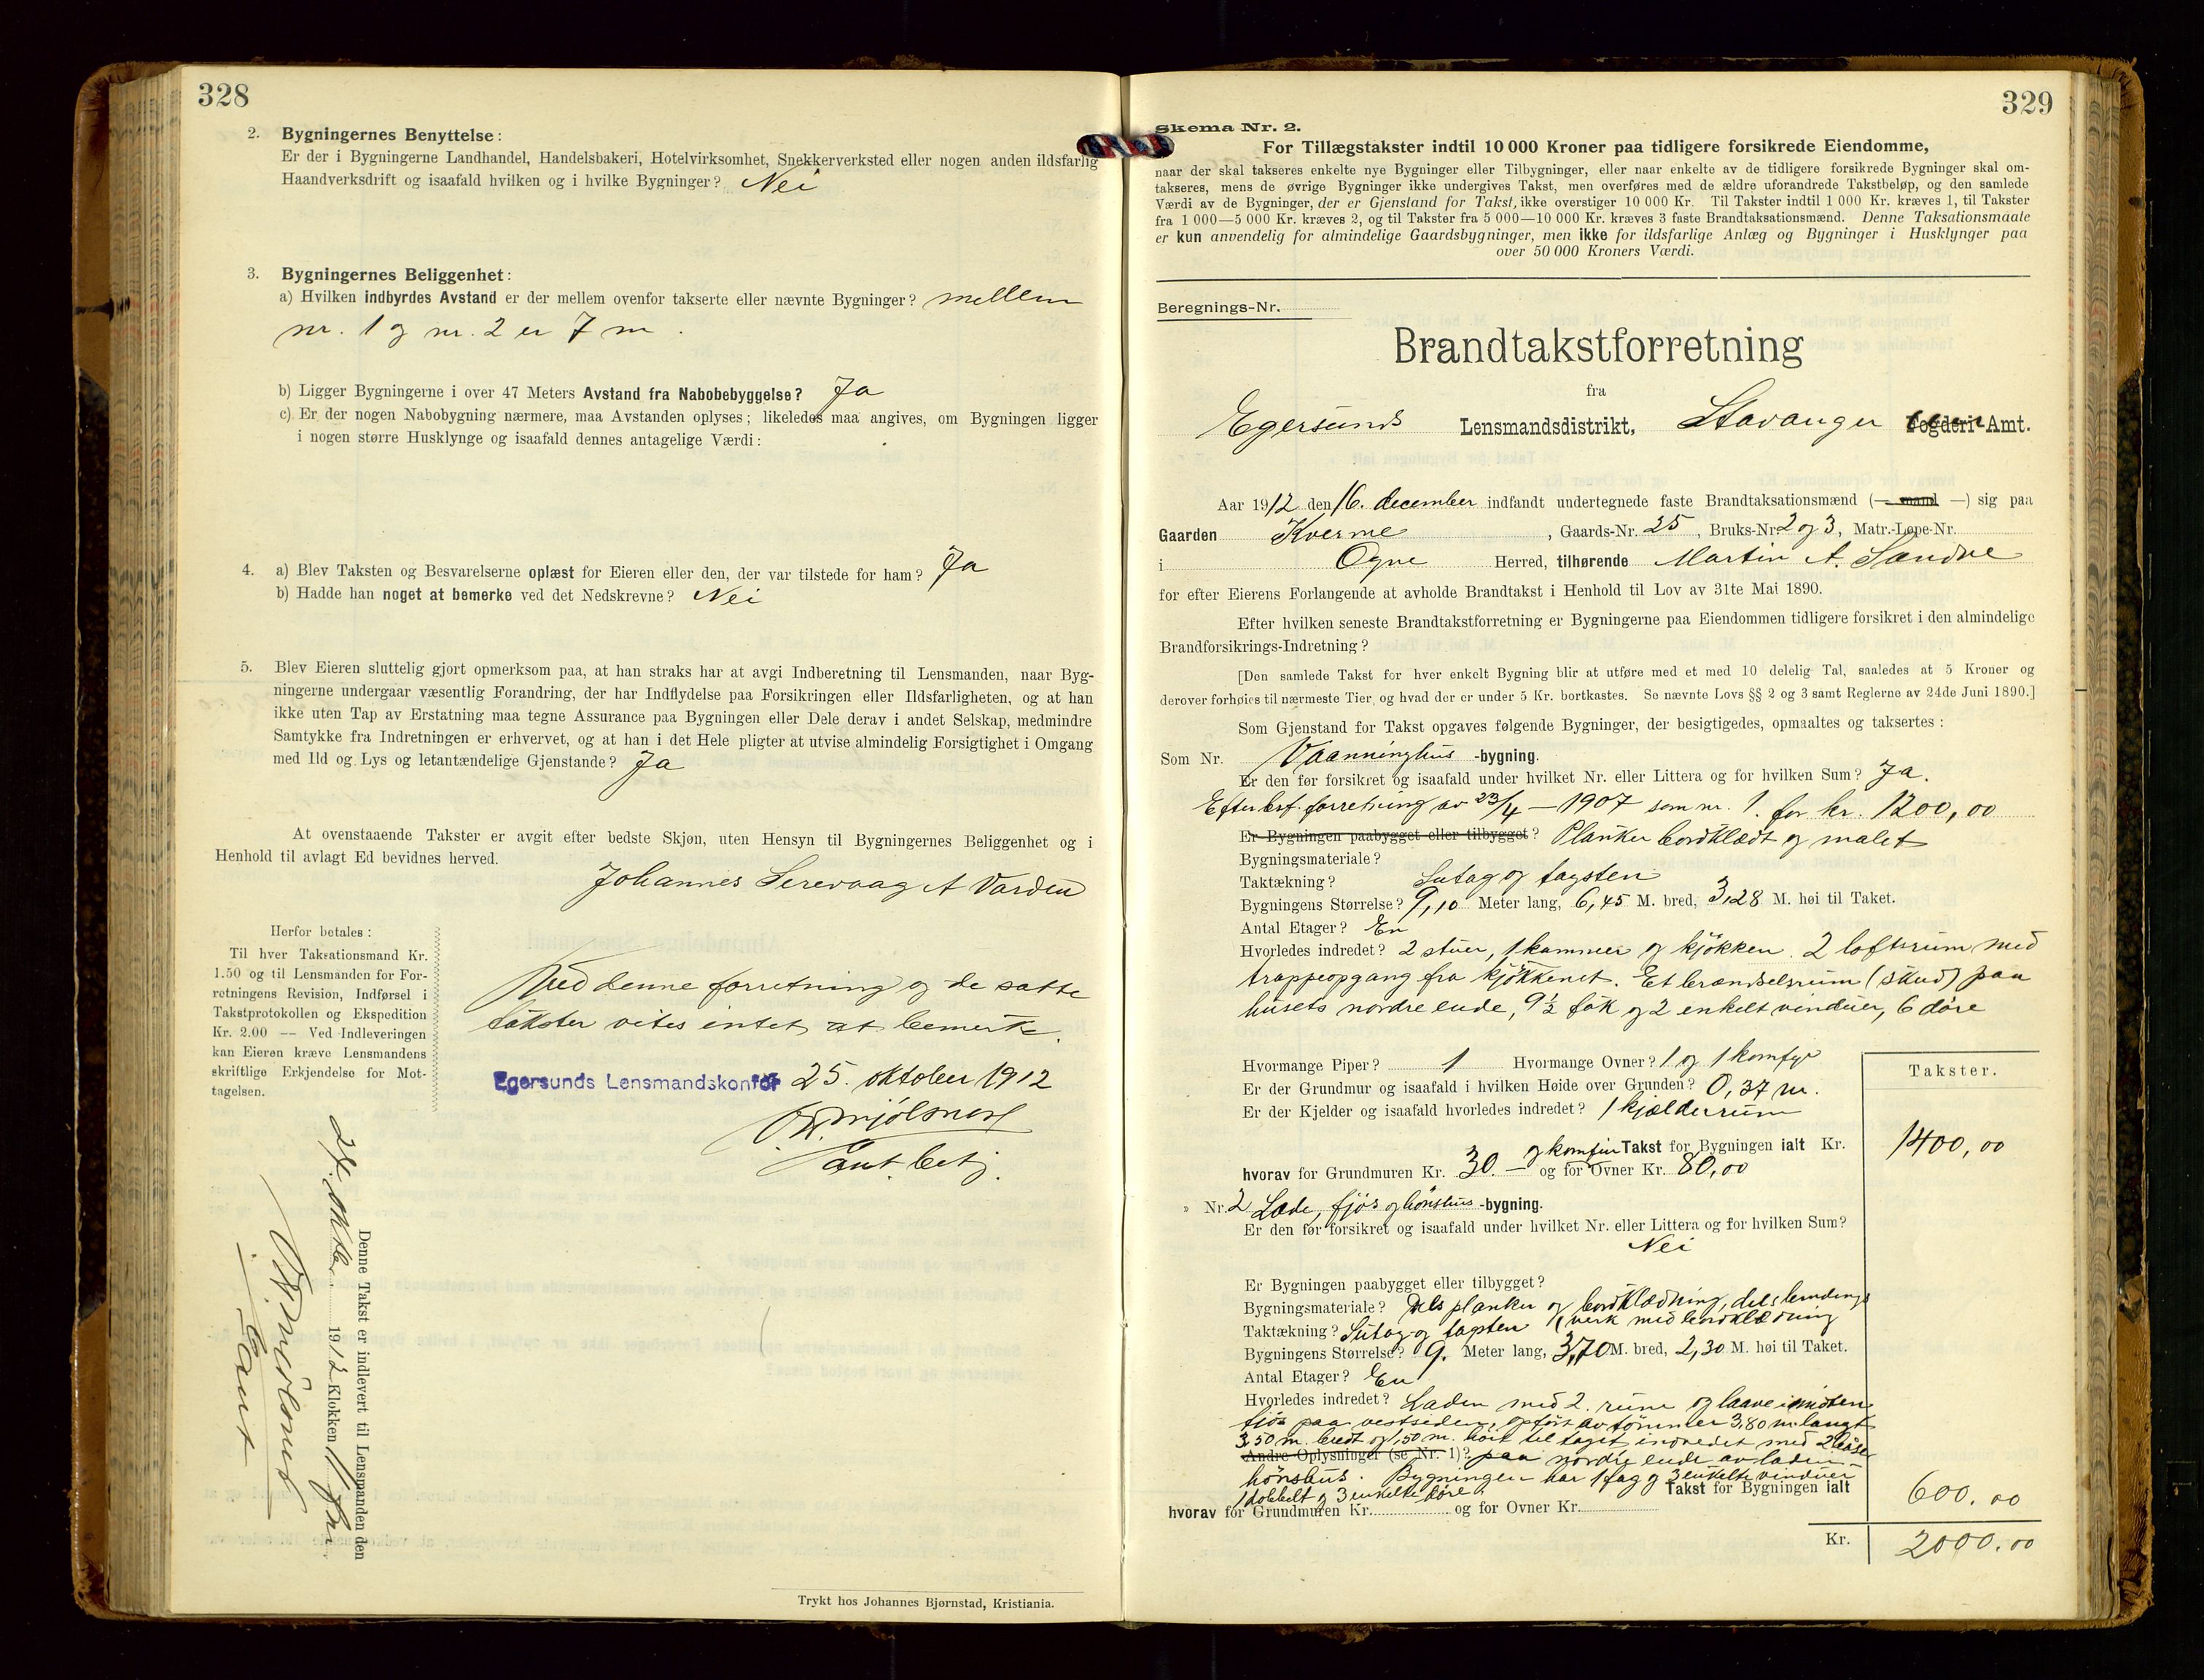 328
2. Bygningernes Benyttelse:
Er der i Bygningerne Landhandel, Handelsbakeri, Hotelvirksomhet, Snekkerverksted eller nogen anden ildsfarlig
Haandverksdrift og isaafald hvilken og i hvilke Bygninger? Nei
3. Bygningernes Beliggenhet:
a) Hvilken indbyrdes Avstand er der mellem ovenfor takserte eller nævnte Bygninger? mellem
nr. 1 og nr. 2 er 7 m.
b) Ligger Bygningerne i over 47 Meters Avstand fra Nabobebyggelse? Ja
c) Er der nogen Nabobygning nærmere, maa Avstanden oplyses; likeledes maa angives, om Bygningen ligger
i nogen større Husklynge og isaafald dennes antagelige Værdi:
4. a) Blev Taksten og Besvarelserne oplæst for Eieren eller den, der var tilstede for ham? Ja
b) Hadde han noget at bemerke ved det Nedskrevne? Nei
5. Blev Eieren sluttelig gjort opmerksom paa, at han straks har at avgi Indberetning til Lensmanden, naar Byg-
ningerne undergaar væsentlig Forandring, der har Indflydelse paa Forsikringen eller Ildsfarligheten, og at han
ikke uten Tap av Erstatning maa tegne Assurance paa Bygningen eller Dele derav i andet Selskap, medmindre
Samtykke fra Indretningen er erhvervet, og at han i det Hele pligter at utvise almindelig Forsigtighet i Omgang
med Ild og Lys og letantændelige Gjenstande? Ja
At ovenstaaende Takster er avgit efter bedste Skjøn, uten Hensyn til Bygningernes Beliggenhet og i
Henhold til avlagt Ed bevidnes herved.
Johannes Serevaag A Varden
Herfor betales:
Til hver Taksationsmand Kr.
1.50 og til Lensmanden for For-
retningens Revision, Indførsel i
Takstprotokollen og Ekspedition
Kr. 2.00 — Ved Indleveringen
kan Eieren kræve Lensmandens
skriftlige Erkjendelse for Mot-
tagelsen.
Ved denne forretning og de satte
takster vites intet at bemerke.
Egersunds Lensmandskontor 25. oktober 1912
Mjølsnes
Const. betj.
Denne Takst er indlevert til Lensmanden den
24. oktbr. 1912 Klokken 11 fm
Mjølsnes
Const
Trykt hos Johannes Bjørnstad, Kristiania.
329
Skema Nr. 2.
For Tillægstakster indtil 10 000 Kroner paa tidligere forsikrede Eiendomme,
naar der skal takseres enkelte nye Bygninger eller Tilbygninger, eller naar enkelte av de tidligere forsikrede Bygninger skal om-
takseres, mens de øvrige Bygninger ikke undergives Takst, men overføres med de ældre uforandrede Takstbeløp, og den samlede
Værdi av de Bygninger, der er Gjenstand for Takst, ikke overstiger 10 000 Kr. Til Takster indtil 1 000 Kr. kræves 1, til Takster
fra 1 000—5 000 Kr. kræves 2, og til Takster fra 5 000—10 000 Kr. kræves 3 faste Brandtaksationsmænd. Denne Taksationsmaate
er kun anvendelig for almindelige Gaardsbygninger, men ikke for ildsfarlige Anlæg og Bygninger i Husklynger paa
over 50 000 Kroners Værdi.
Beregnings-Nr.
Brandtakstforretning
fra
Egersunds Lensmandsdistrikt, Stavanger Fogderi-Amt.
Aar 1912 den 16. december indfandt undertegnede faste Brandtaksationsmænd (— mand —) sig paa
Gaarden Kverme, Gaards-Nr. 25, Bruks-Nr. 2 og 3, Matr.-Løpe-Nr.
i Ogne Herred, tilhørende Martin A. Sandve
for efter Eierens Forlangende at avholde Brandtakst i Henhold til Lov av 31te Mai 1890.
Efter hvilken seneste Brandtakstforretning er Bygningerne paa Eiendommen tidligere forsikret i den almindelige
Brandforsikrings-Indretning?
[Den samlede Takst for hver enkelt Bygning blir at utføre med et med 10 delelig Tal, saaledes at 5 Kroner og
derover forhøies til nærmeste Tier, og hvad der er under 5 Kr. bortkastes. Se nævnte Lovs §§ 2 og 3 samt Reglerne av 24de Juni 1890.]
Som Gjenstand for Takst opgaves følgende Bygninger, der besigtigedes, opmaaltes og taksertes:
Som Nr. Vaaninghus -bygning.
Er den før forsikret og isaafald under hvilket Nr. eller Littera og for hvilken Sum? Ja.
Efter bsf. forretning av 23/4 - 1907 som nr. 1. for kr. 1200,00
Er Bygningen paabygget eller tilbygget? Planker bordklædt og malet
Bygningsmateriale?
Taktækning? Sutag og tagsten
Bygningens Størrelse? 9,10 Meter lang, 6,45 M. bred, 3,28 M. høi til Taket.
Antal Etager? En
Hvorledes indredet? 2 stuer, 1 kammer og kjøkken. 2 loftsrum med
trappeopgang fra kjøkkenet. Et brændselsrum (skud) paa
husets nordre ende, 9½ fak og 2 enkelt vinduer, 6 døre
Hvormange Piper? 1 Hvormange Ovner? 1 og 1 komfyr
Er der Grundmur og isaafald i hvilken Høide over Grunden? 0,37 m.
Er der Kjelder og isaafald hvorledes indredet? 1 kjælderrum
Takster.
og komfur Takst for Bygningen ialt Kr. 1400,00
hvorav for Grundmuren Kr. 30.— og for Ovner Kr. 80,00
» Nr. 2 Lade, fjøs og hønshus -bygning.
Er den før forsikret og isaafald under hvilket Nr. eller Littera og for hvilken Sum?
Nei
Er Bygningen paabygget eller tilbygget?
Bygningsmateriale? Dels planker og bordklædning, dels bindings
Taktækning? Sutag og tagsten (verk med bordklædning
Bygningens Størrelse? 9. Meter lang, 3,70 M. bred, 2,30 M. høi til Taket.
Antal Etager? En
Hvorledes indredet? Laden med 2. rum og laave i midten
fjøs paa vestsiden, opført av tømmer 3,80 m. langt
3,50 m. bredt og 1,50 m. høit til taget indredet med 2 baase
Andre Oplysninger (se Nr. 1)? paa nordre ende av laden
hønshus. Bygningen har 1 fag og 3 enkelte vinduer
1 dobbelt og 3 enkelte døre Takst for Bygningen ialt 600.00
hvorav for Grundmuren Kr. og for Ovner Kr.
Kr. 2000.00